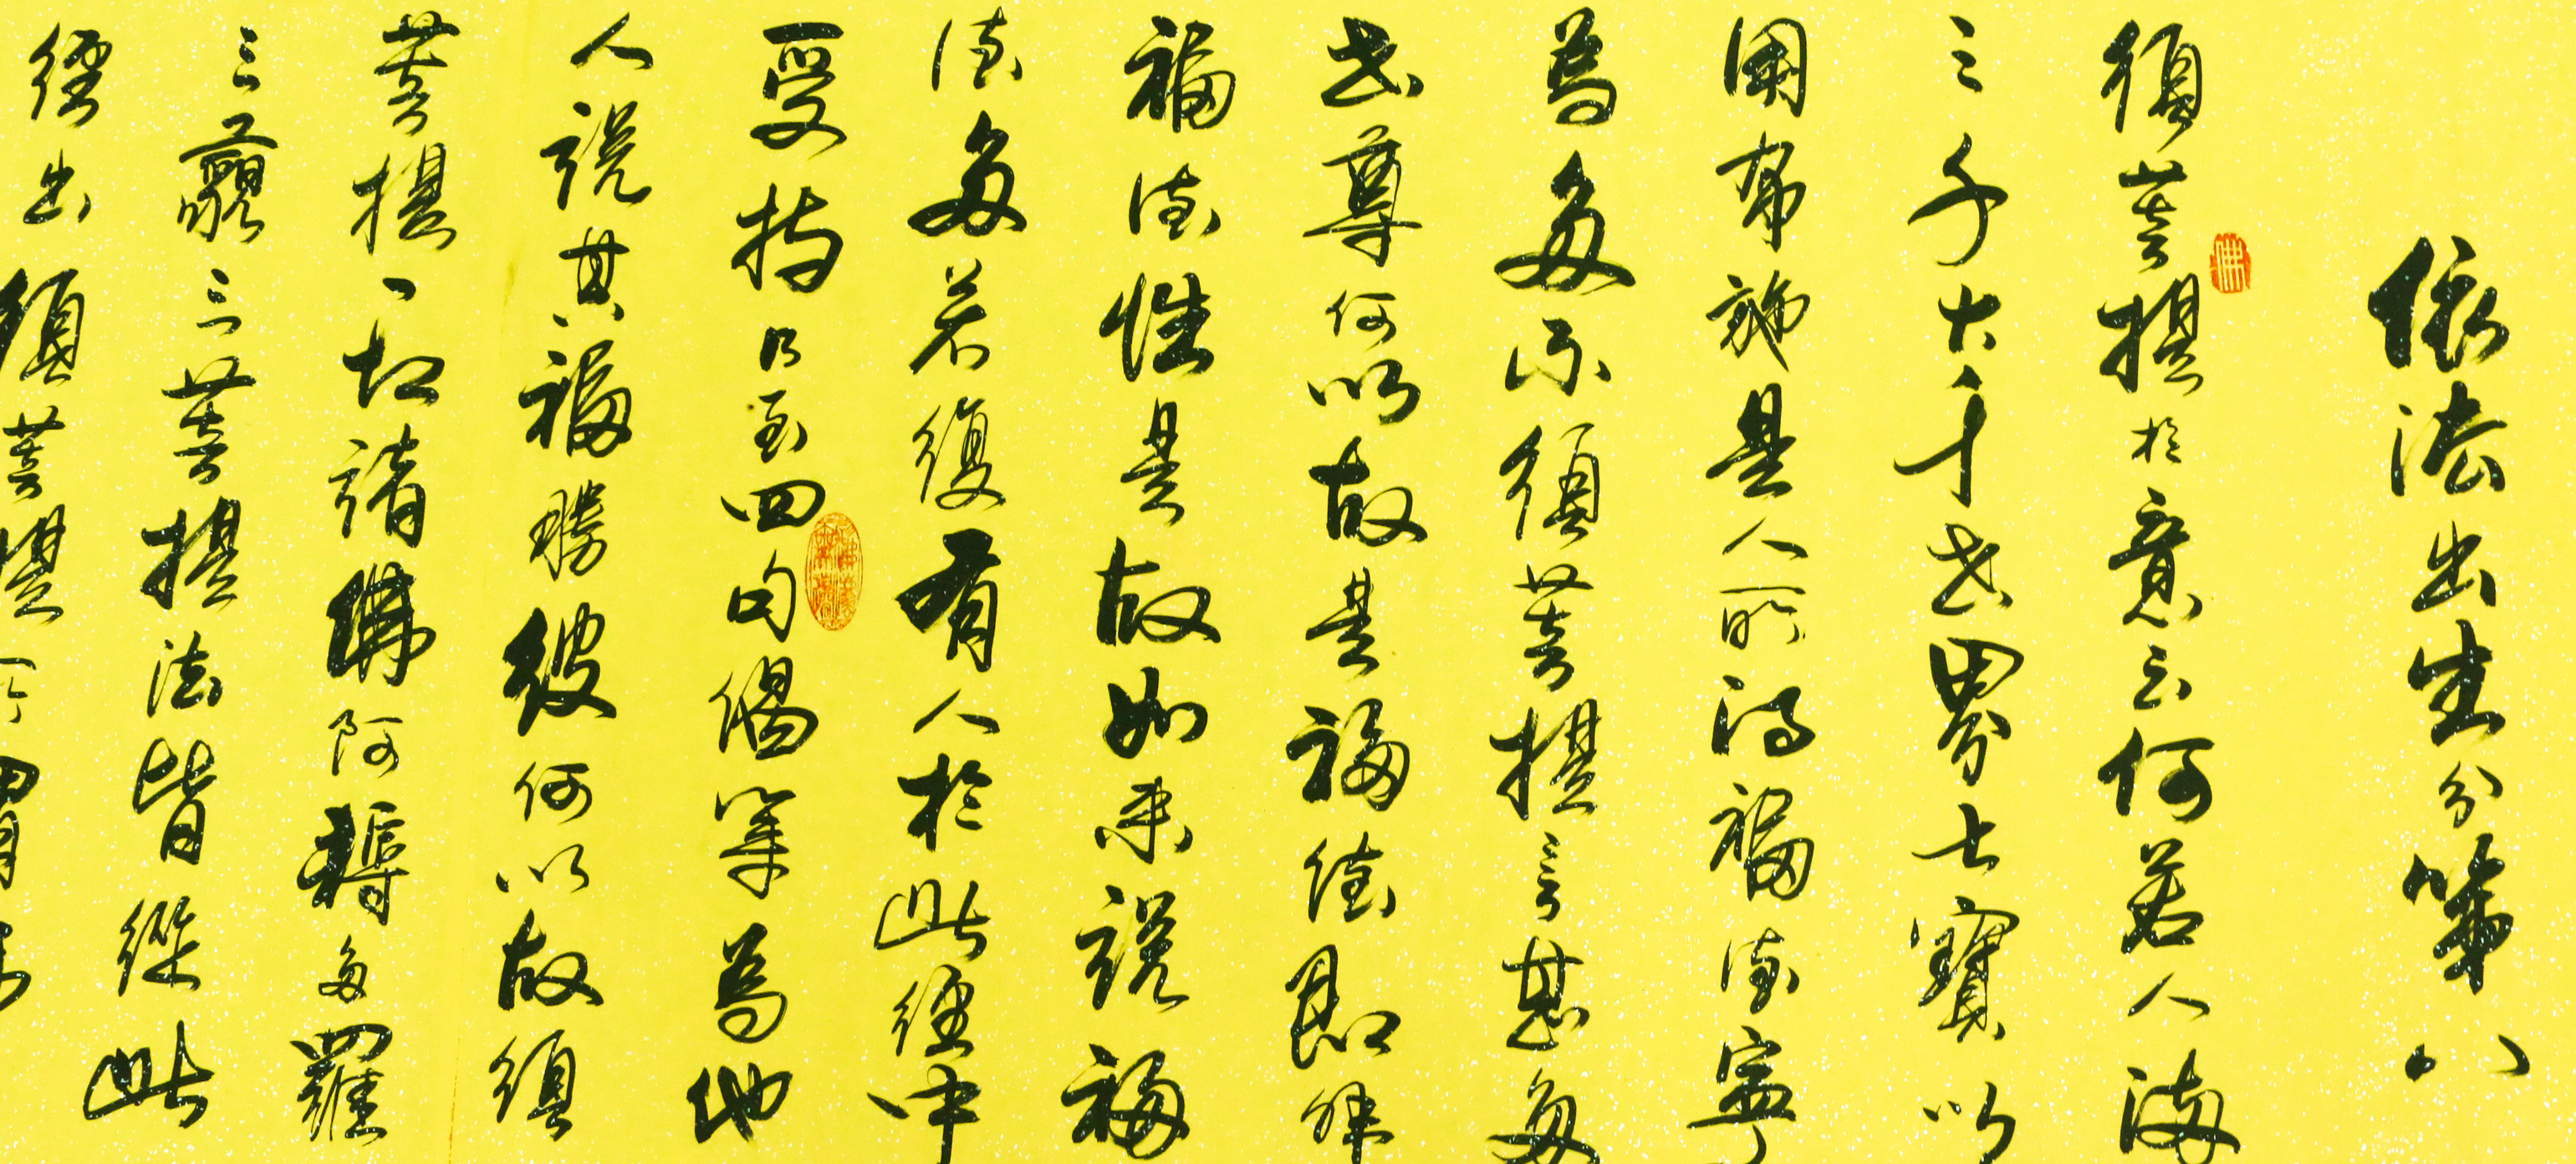 依法出生分第八
須菩提於意云何若人滿
三千大千世界七寶以
用布施是人所得福德寧
為多不須菩提言甚多
世尊何以故是福德即非
福德性是故如來說福
德多若復有人於此經中
受持乃至四句偈等為他
人說其福勝彼何以故須
菩提一切諸佛阿耨多羅
三藐三菩提法皆從此
經出須菩提所謂
佛